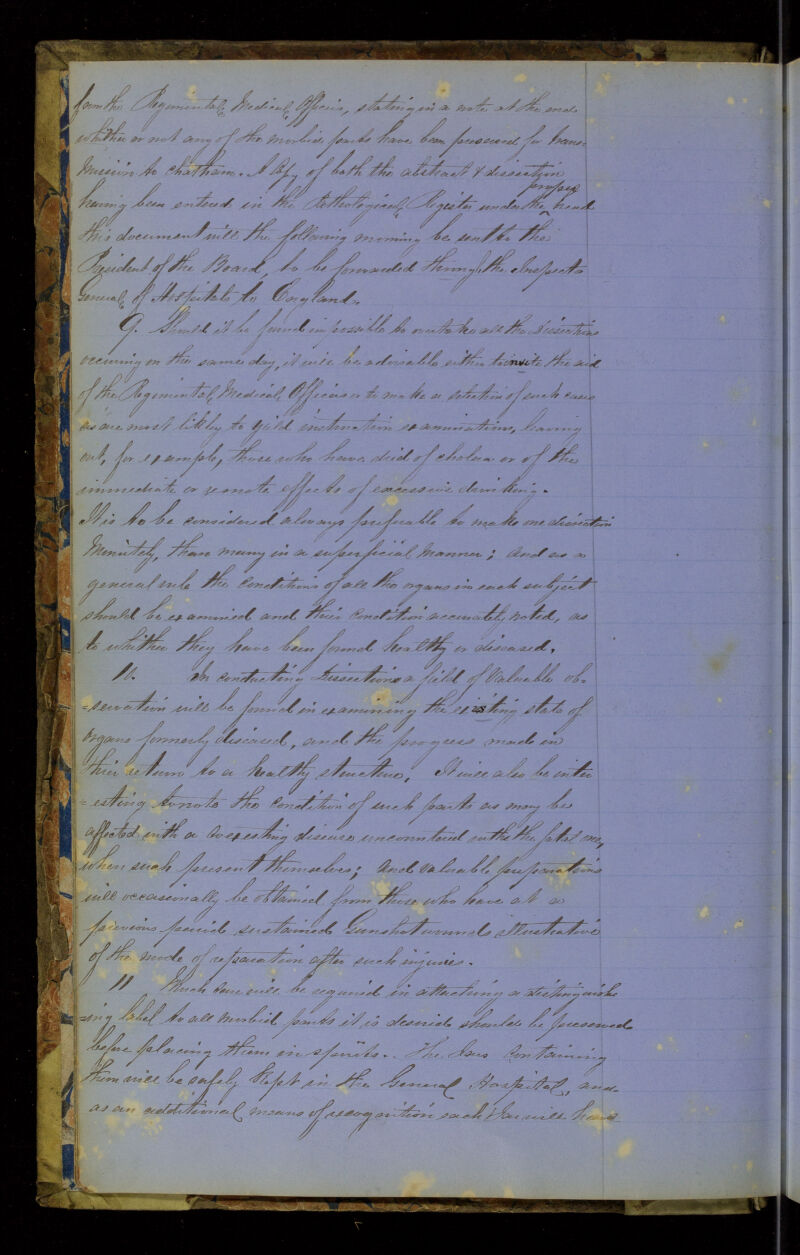 from the Regimental Medical Officer, stating in a note at the end
whether or not any of the morbid parts have been preserved for trans-
mission to Chatham. A Copy of both the abstract & dissection
having been entered in the Pathological Register under the proper head
this document will the following morning be sent to the
President of the Board, to be forwarded through the Inspector
General of Hospitals to England.
9. Should it be found impossible to overtake all the dissections
occuring on the same day, it will be advisable either to invite the aid
of the Regimental Medical Officers or to make a selection of such cases
as are most likely to yield instruction examination, leaving
out, for example, those who have died of cholera or of the
immediate or remote effects of excessive drinking.
It is to be considered always preferable to make one dissection
Minutely, than many in a superficial manner; and as a
general rule the condition of all the organs in each subject
should be examined and their condition accurately noted, as
to whether they have been found healthy or diseased.
10. In conducting Dissections a field of Valuable ob-
=servation will be found in examining the existing state of
organs formerly diseased, and the progress made in
their return to a healthy structure. It will also be inter
=esting to note the condition of such parts as may be
affected with a coexisting disease unconnected with the fatal one,
when such present themselves; and valuable preparations
will occasionally be obtained from those who have at a
previous period sustained Gunshot wounds illustrative
of the mode of reparation after such injuries.
11 Much care will be required in attaching a distinguish
=ing label to all morbid parts it is desired should be preserved
before placing them in spirits. The Jars containing
them will be safely kept in the General Hospital, and
as an additional means of recognition each Jar will have